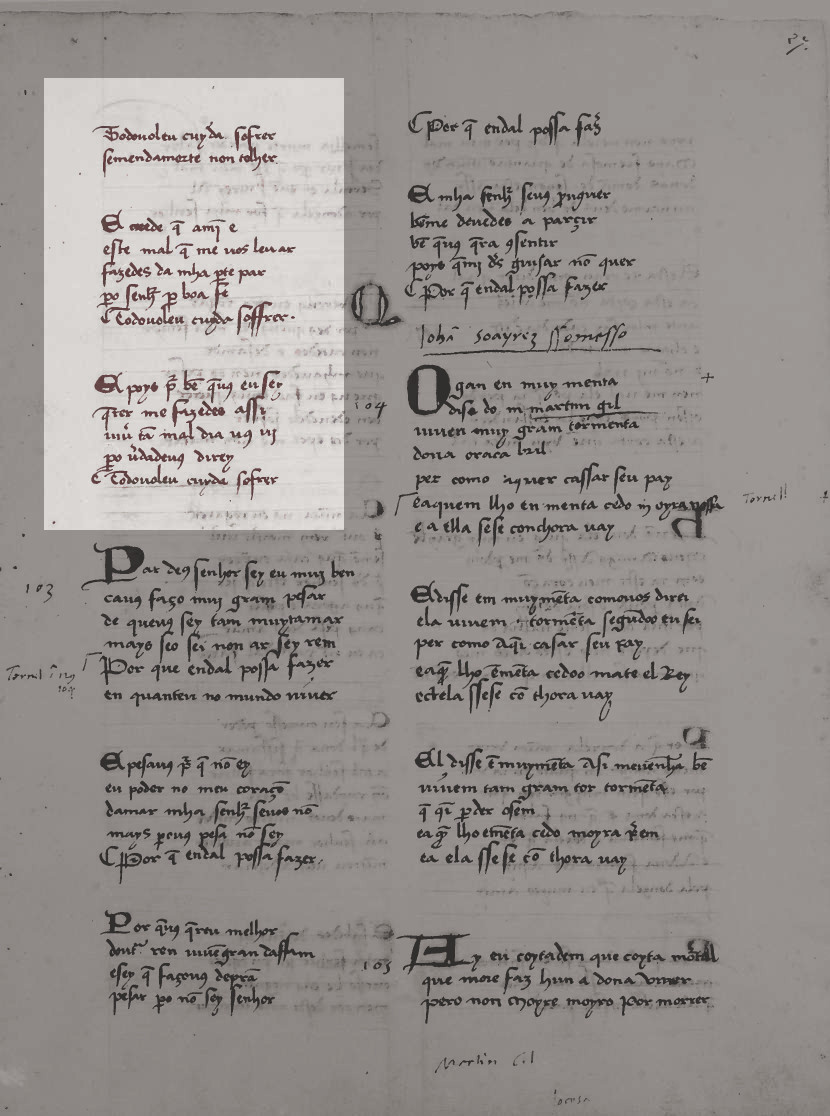 Todouoleu cuyda sofrer
semendamorte non tolher
E ore de q̄ amj̄ e
este mal q̄ me uos leuar
fazedes da mha ꝑte par
ꝑo senhʳ ꝑ boa fe
Todouoleu cuyda soffrer.
E poys pʳ bē q̄uꝯ eu sey
q̄rer me fazedes assy
uiuʳ tā mal dia uꝯ ui
ꝑo uʳdadeuꝯ direy
Todouoleu cuyda sofrer
103
Par deꝯ senhor sey eu muj ben
cauꝯ faço muj gram pesar
de queuꝯ sey tam muytamar
mays seo sei non ar sey rem
Por que endal possa fazer
en quanteu no mundo uiuer
E pesauꝯ pʳ q̄ nō ey
eu poder no meu coraçō
damar mha senhʳ seuos nō
mays ꝑouꝯ pesa nō sey
Por q̄ endal possa fazer.
Por q̄uꝯ q̄reu melhor
doutʳ ren
esey q̄ façouꝯ depra
pesar ꝑo nō sey senhor
Por q̄ endal possa faz̄
E mha senhʳ seuꝯ ꝓuguer
bēme deuedes a parçir
bē q̄uꝯ q̄ra ꝯsentir
poys q̄mi ds̄ guisar nō quer
Por q̄ endal possa fazer
Johā soayrez ssomesso
104
Ogan en muy menta
disē do m̄ martim gil
uiuen muy gram tormenta
dona oraca bril
per como aquer cassar seu pay
eaquem lho en menta cedo m̄ oyra possa
e a ella sese conchora uay
Tornell
Edisse em muymēta comouos direi
ela uiuem tormēta segūdoo eu sei
per como aq̄r casar seu Pay
eaq̄ lho ēmēta cedoo mate el Rey
ectela ssese cō thora uay
El disse ēmuymēta
uiuem tam gram tor tormēta
q̄ q̄r ꝑder osem
ea q̄ lho emēta cedo moyra pʳem
ea ela ssese cō thora uay
105
Ey eu coytadem que coyta mortal
que moie faz hun a dona uiuer
pero non moyre moyro por morrer
Martin Gil